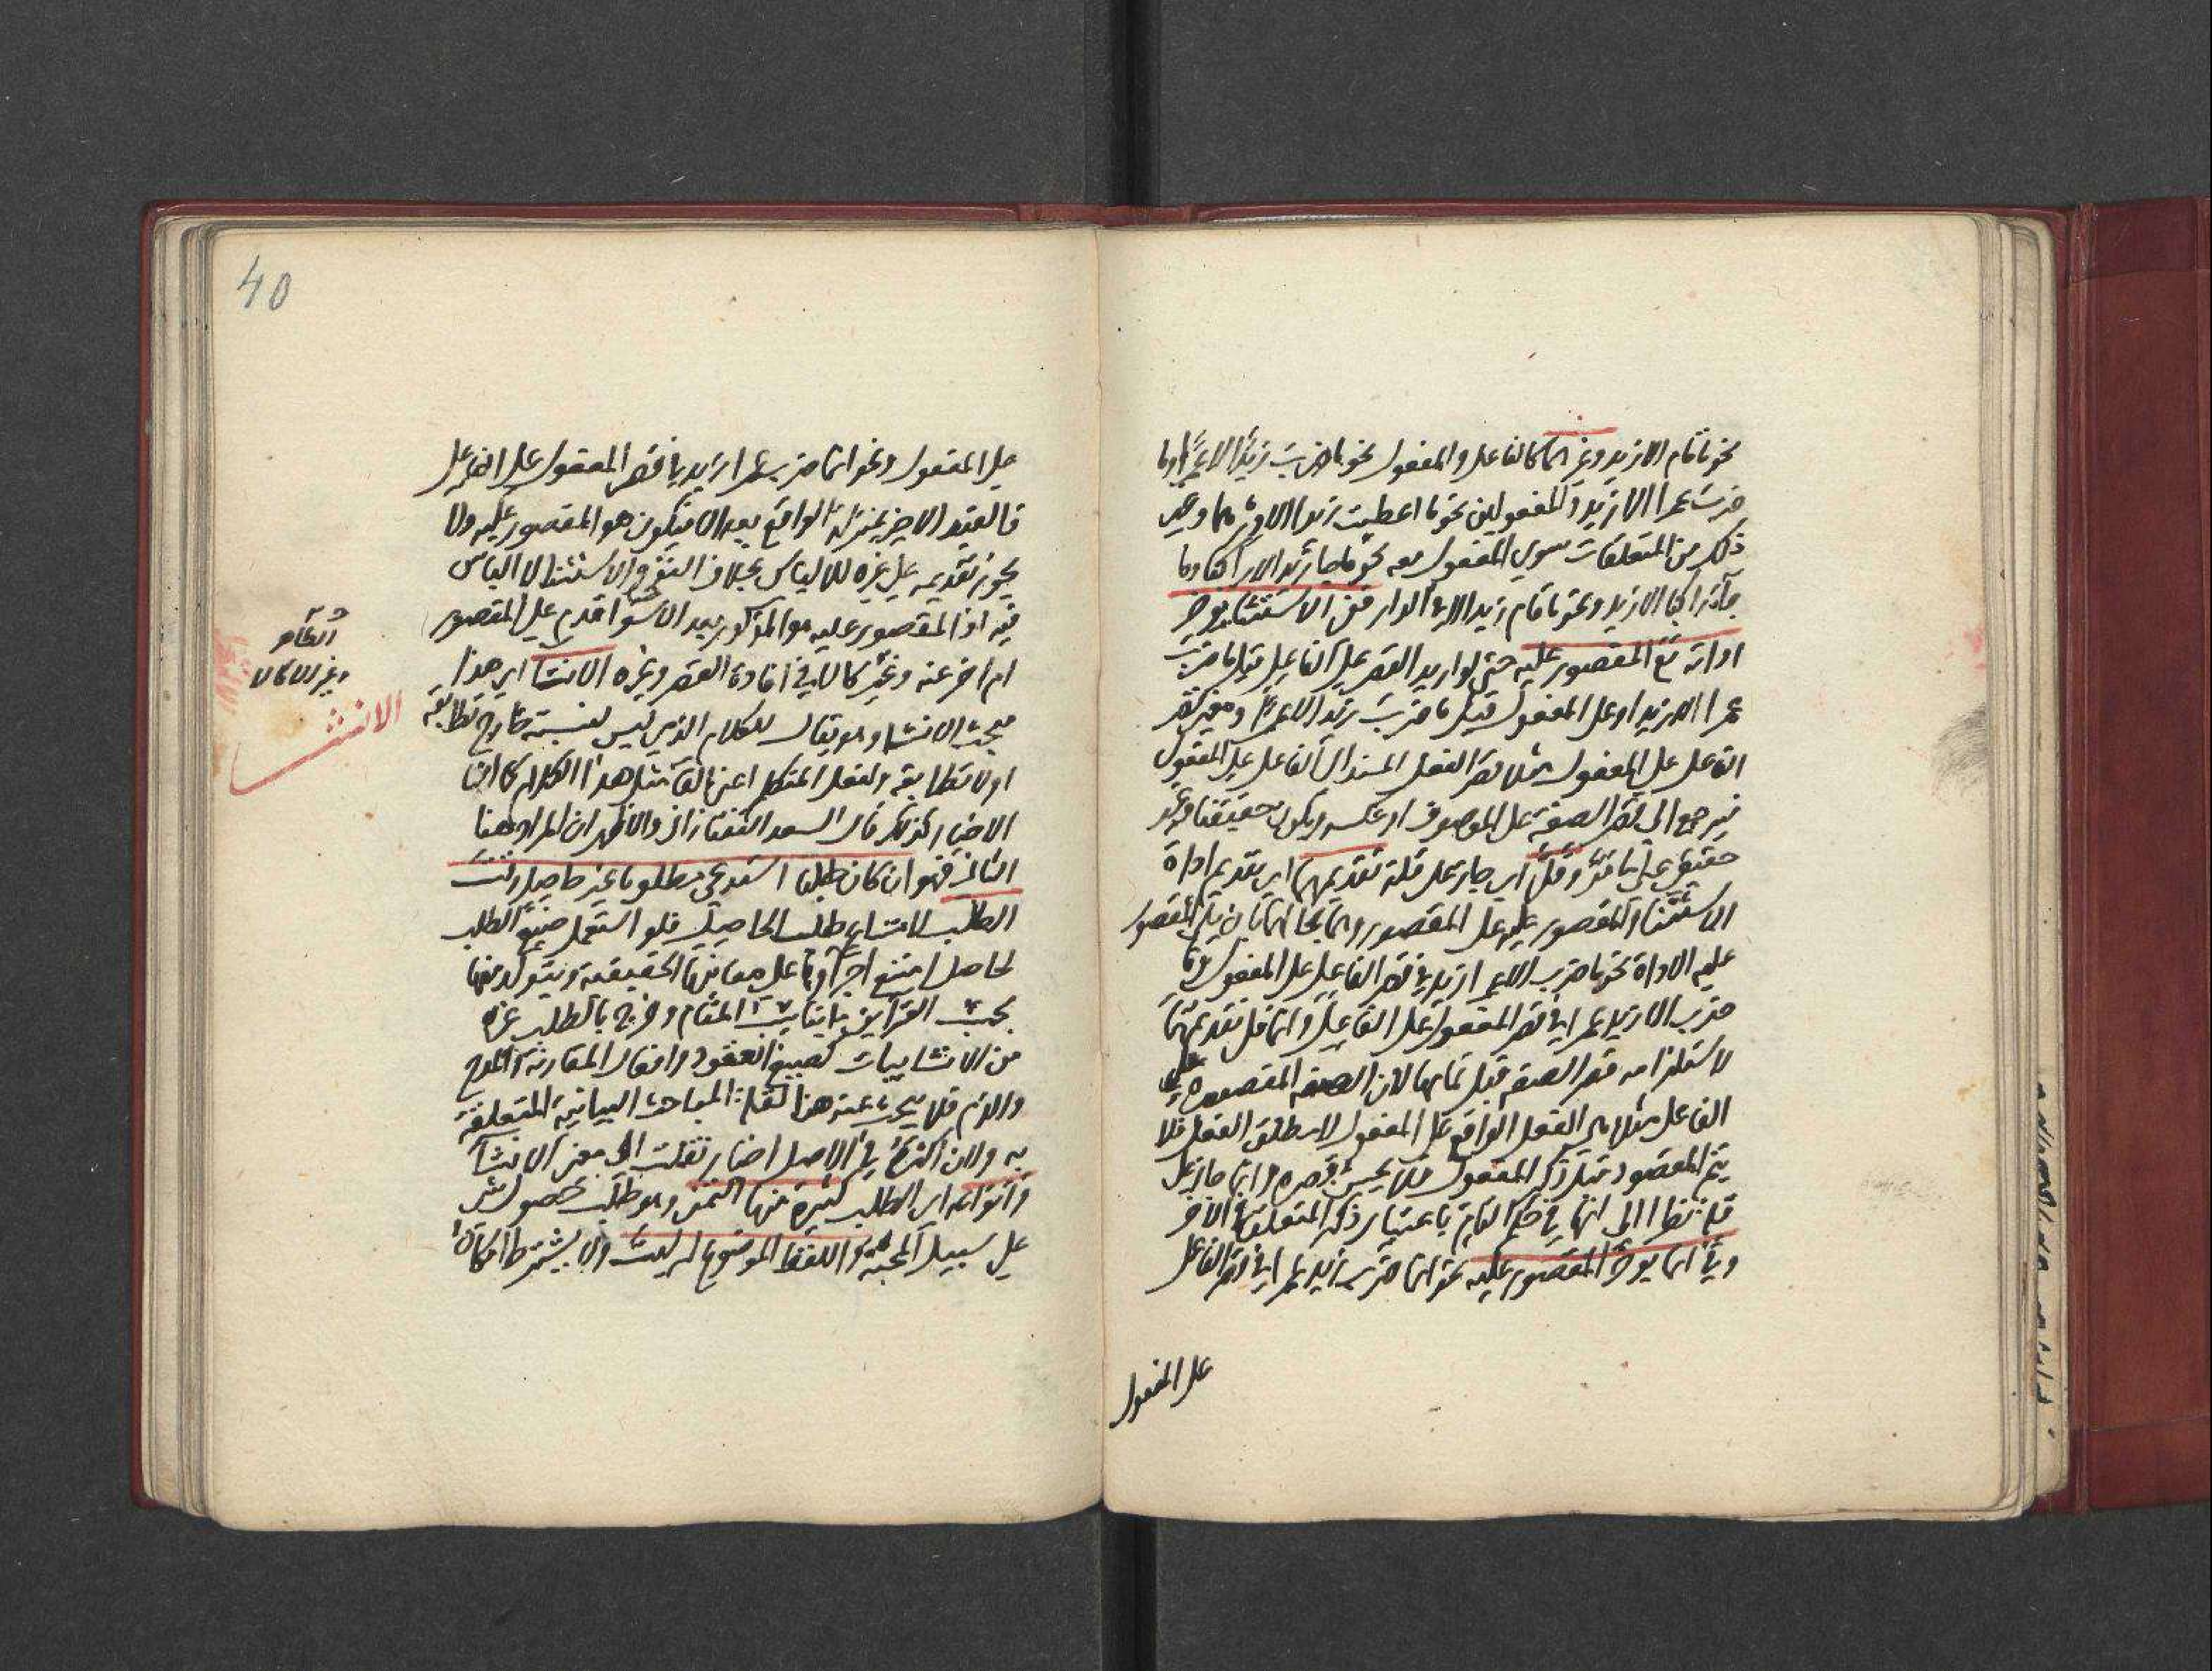 نحو ما قام الا زيد وغيرهما كالفاعل والمفعول نحو ما ضرب زيد الا عمرا وما
ضرب عمرا الا زيد والمفعولين نحو ما اعطيت زيدا الا درهما وغير
ذلك من المتعلقات سوى المفعول معه نحو ما جا زيد الا راكبا وما
جا راكبا الا زيد ونحو ما قام زيد الا في الدار ففى الاستثنا يوخر
اداته مع المقصور عليه حتى لو اريد القصر على الفاعل قيل ما ضرب
عمرا الا زيد او على المفعول قيل ما ضرب زيد الا عمرا ومعنى قصر
الفاعل على المفعول مثلا قصر الفعل المسند الى الفاعل على المفعول
فيرجع الى قصر الصفة على الموصوف او عكسه ويكون حقيقيا وغير
حقيقى على ما مر وقل اى جاز على قلة تقديمهما اى تقديم اداة
الاستثنا والمقصور عليه على المقصور وهما بحالهما بان يلى المقصور
عليه الاداة نحو ما ضرب الا عمرا زيد فى قصر الفاعل على المفعول وما
ضرب الا زيد عمرا فى قصر المفعول على الفاعل وانما قل تقديمهما
لاستلزامه قصر الصفة قبل تمامها لان الصفة المقصورة على
الفاعل مثلا هى الفعل الواقع على المفعول لا مطلق الفعل فلا
يتم المقصود قبل ذكر المفعول فلا يحسن قصره وانما جاز على
قلة نظرا الى انها فى حكم التام باعتبار ذكر المتعلق فى الاخر
وفى انما يوخر المقصور عليه نحو انما ضرب زيد عمرا فى قصر الفاعل
على المفعول
40
على المفعول ونحو انما ضرب عمرا زيد فى قصر المفعول على الفاعل
فالقيد الاخير بمنزلة الواقع بعد الا فيكون هو المقصور عليه ولا
يجوز تقديمه على غيره للالباس بخلاف النفى والاستثنا لا الباس
فيه اذ المقصور عليه هو المذكور بعد الا سوا قدم على المقصور
ام اخر عنه وغير كالا فى افادة القصر وغيره الانشا اى هذا
مبحث الانشا وهو يقال للكلام الذى ليس لنسبته خارج تطابقه
او لا تطابقه ولفعل المتكلم اعنى القا مثل هذا الكلام كما ان
الاخبار كذلك قال السعد التفتازانى والاظهر ان المراد هنا
الثانى فهو ان كان طلبا استدعى مطلوبا غير حاصل وقت
الطلب لامتناع طلب الحاصل فلو استعمل صيغ الطلب
لحاصل امتنع اجراوها على معانيها الحقيقية ويتولد منها
بحسب القراين ما يناسب المقام وخرج بالطلب غيره
من الانشاييات كصيغ العقود وافعال المقاربة والمدح
والذم فلا يبحث عنه هنا لقلة المباحث البيانية المتعلقة
به ولان اكثرها فى الاصل اخبار نقلت الى معنى الانشا
وانواعه اى الطلب كثيرة منها التمنى وهو طلب حصول شى
على سبيل المحبة واللفظ الموضوع له ليت ولا يشترط امكان
الانشا